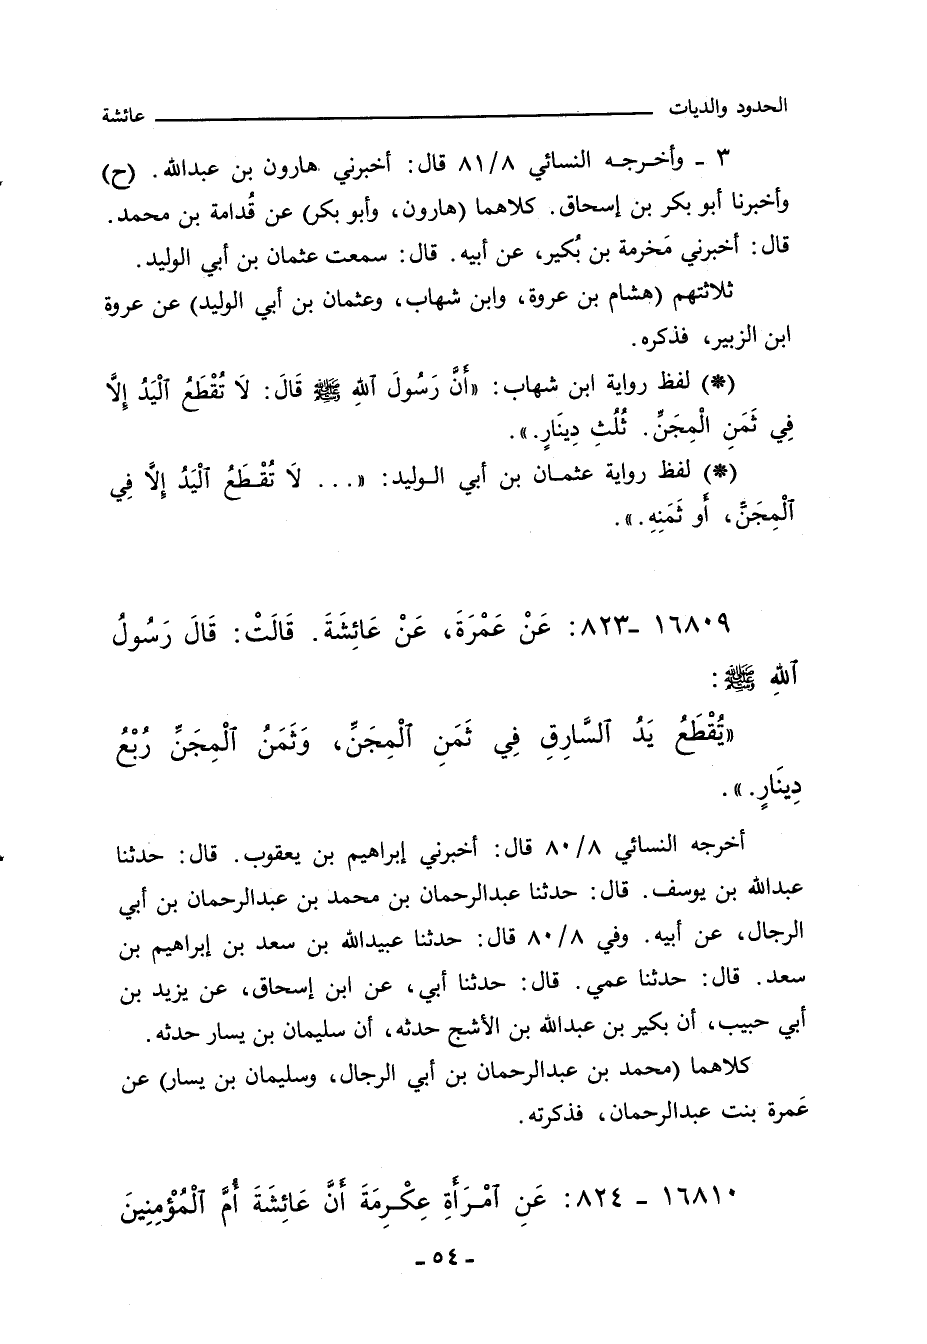 الحدود والديات ــــــــــــــــــــ عائشة
٣ ـ وأخـرجـه النسائي ٨١/٨ قال: أخبرني هارون بن عبدالله. (ح)
وأخبرنا أبو بكر بن إسحاق. كلاهما (هارون، وأبو بكر) عن قُدامة بن محمد.
قال: أخبرني مَخرمة بن بُكير، عن أبيه. قال: سمعت عثمان بن أبي الوليد.
ثلاثتهم (هشام بن عروة، وابن شهاب، وعثمان بن أبي الوليد) عن عروة
ابن الزبير، فذكره.
(*) لفظ رواية ابن شهاب: «أَنَّ رَسُولَ ٱللهِ ﷺ قَالَ: لَا تُقْطَعُ ٱلْيَدُ إِلَّا
فِي ثَمَنِ الْمِجَنِّ. ثُلُثِ دِينَارٍ.».
(*) لفظ رواية عثمـان بن أبي الـوليد: «... لَا تُقْـطَعُ ٱلْيَدُ إِلَّا فِي
ٱلْمِجَنِّ، أَو ثَمَنِهِ.».
١٦٨٠٩ ـ٨٢٣: عَنْ عَمْرَةَ، عَنْ عَائِشَةَ. قَالَتْ: قَالَ رَسُولُ
ٱللهِ ﷺ:
«تُقْطَعُ يَدُ ٱلسَّارِقِ فِي ثَمَنِ ٱلْمِجَنِّ، وَثَمَنُ ٱلْمِجَنِّ رُبْعُ
دِينَارٍ.».
أخرجه النسائي ٨٠/٨ قال: أخبرني إبراهيم بن يعقوب. قال: حدثنا
عبدالله بن يوسف. قال: حدثنا عبدالرحمان بن محمد بن عبدالرحمان بن أبي
الرجال، عن أبيه. وفي ٨٠/٨ قال: حدثنا عبيدالله بن سعد بن إبراهيم بن
سعد. قال: حدثنا عمي. قال: حدثنا أبي، عن ابن إسحاق، عن يزيد بن
أبي حبيب، أن بكير بن عبدالله بن الأشج حدثه، أن سليمان بن يسار حدثه.
كلاهما (محمد بن عبدالرحمان بن أبي الرجال، وسليمان بن يسار) عن
عَمرة بنت عبدالرحمان، فذكرته.
١٦٨١٠ ـ ٨٢٤: عَنِ ٱمْـرَأَةِ عِكْـرِمَةَ أَنَّ عَائِشَةَ أُمَّ ٱلْمُؤْمِنِينَ
ـ ٥٤ ـ